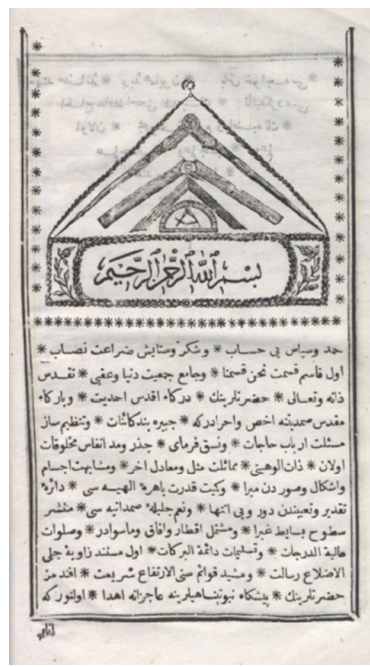 بسم الله الرحمن الرحيم
حمد وسپاس بی حساب * وشکر وستایش ضراعت نصاب *
اول قاسم قسمت نحن قسمنا * وجامع جمعیت دنیا وعقبی * تقدس
ذاته وتعالی * حضرتلرینك * درکاه اقدس احدیت * وبارکاه
مقدس صمدیتنه اخص واحرادرکه * جبیره بندکائنات * وتنظیم ساز
مسئلت ارباب حاجات * ونسق فرمای * جذر ومد انفاس مخلوقات
اولان * ذات الوهیتی * مماثلت مثل ومعادل اخر * ومشابهت اجسام
واشکال وصور دن مبرا * وکیت قدرت باهرهٔ الهیه سی * دائرهٔ
تقدیر وتعییندن دور وبی انتها * ونعم جلیلهٔ صمدانیه سی * منتشر
سطوح بسایط غبرا * ومشتمل اقطار وافاق وماسوادر * وصلوات
عالیة الدرجات * وتسلیمات دائمة البرکات * اول مستند زاویهٔ جلی
الاضلاع رسالت * ومشید قوائم سنی الارتفاع شریعت * افندمز
حضرتلرینك * پیشکاه نبوتپناهیلرینه عاجزانه اهدا * اولنورکه